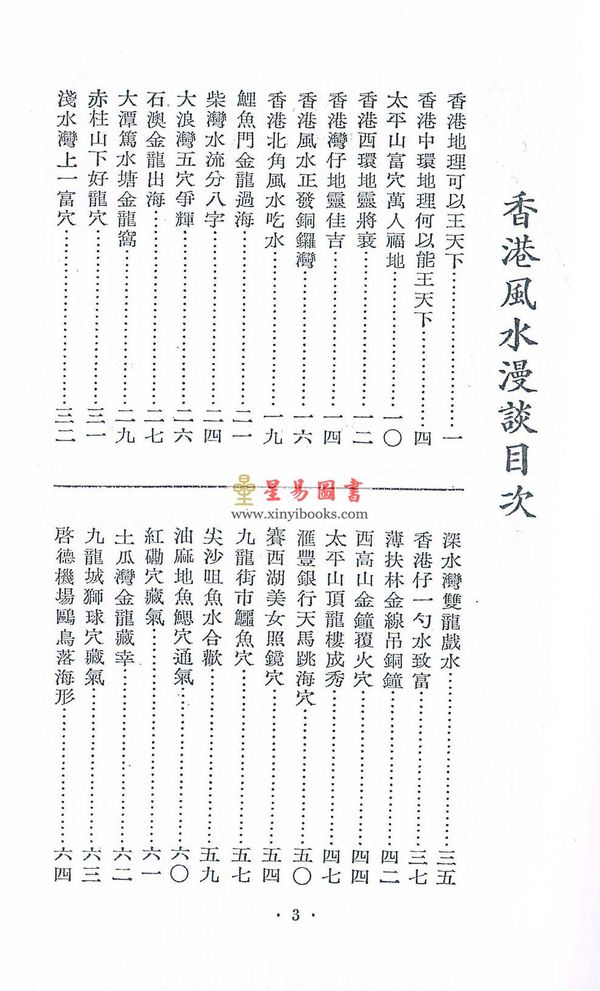 香港風水漫談目次
香港地理可以王天下⋯⋯一
香港中環地理何以能王天下⋯⋯四
太平山富穴萬人福地⋯⋯一〇
香港西環地靈將衰⋯⋯一二
香港灣仔地靈佳吉⋯⋯一四
香港風水正發銅鑼灣⋯⋯一六
香港北角風水吃水⋯⋯一九
鯉魚門金龍過海⋯⋯二一
柴灣水流分八字⋯⋯二四
大浪灣五穴爭輝⋯⋯二六
石澳金龍出海⋯⋯二七
大潭篤水塘金龍窩⋯⋯二九
赤柱山下好龍穴⋯⋯三一
淺水灣上一富穴⋯⋯三二
深水灣雙龍戲水⋯⋯三五
香港仔一勺水致富⋯⋯三七
薄扶林金線吊銅鐘⋯⋯四二
西高山金鐘覆火穴⋯⋯四四
太平山頂龍樓成秀⋯⋯四七
滙豐銀行天馬跳海穴⋯⋯五〇
賽西湖美女照鏡穴⋯⋯五四
九龍街市鱷魚穴⋯⋯五七
尖沙咀魚水合歡⋯⋯五九
油麻地魚鰓穴通氣⋯⋯六〇
紅磡穴藏氣⋯⋯六一
土瓜灣金龍藏幸⋯⋯六二
九龍城獅球穴藏氣⋯⋯六三
啓德機場鷗鳥落海形⋯⋯六四
星易圖書
www.xinyibooks.com
· 3 ·